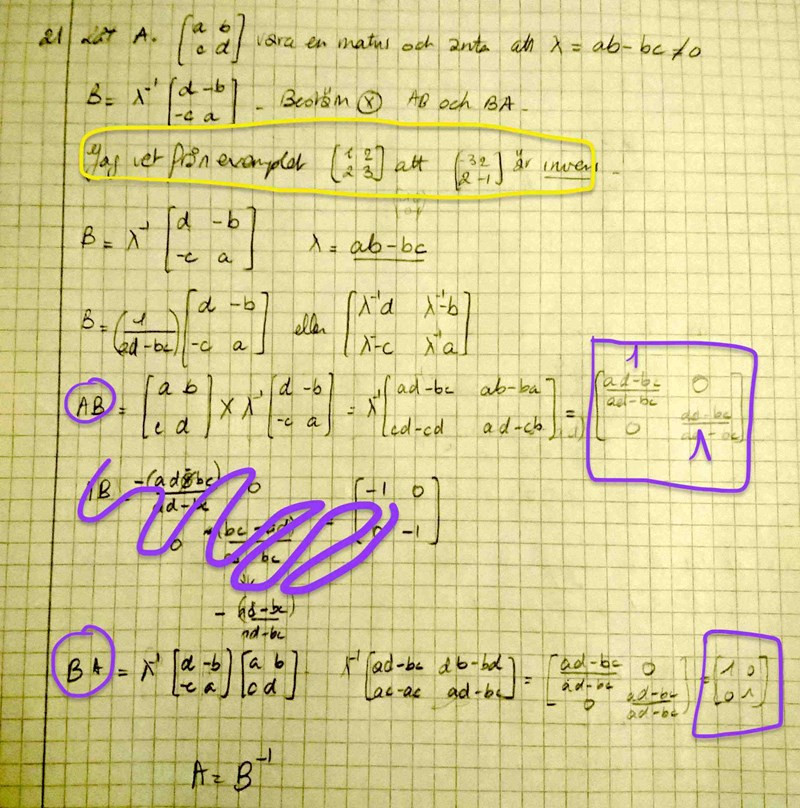 21 Låt A. [a b; c d] vara en matris och anta att λ = ab-bc ≠ 0
B = λ⁻¹ [d -b; -c a] . Bestäm ⓧ AB och BA.
Jag vet från exemplet [1 2; 2 3] att [-3 2; 2 -1] är invers.
B = λ⁻¹ [d -b; -c a] λ = ab-bc
B = (1/ad-bc) [d -b; -c a] eller [λ⁻¹d λ⁻-b; λ⁻-c λ⁻¹a]
AB = [a b; c d] × λ⁻¹ [d -b; -c a] = λ⁻¹ [ad-bc ab-ba; cd-cd ad-cb] = [ad-bc/ad-bc 0; 0 ad-bc/ad-bc] 1 1
[-1 0; 0 -1]
- (ad-bc)/ad-bc
BA = λ⁻¹ [d -b; -c a] [a b; c d] λ⁻¹ [ad-bc db-bd; ac-ac ad-bc] = [ad-bc/ad-bc 0; 0 ad-bc/ad-bc] = [1 0; 0 1]
A = B⁻¹